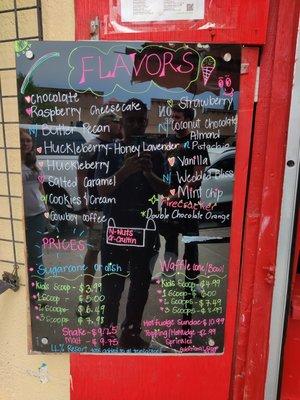 FLAVORS
Chocolate
Raspberry Cheesecake
N Butter Pecan
Huckleberry-Honey Lavender
Huckleberry
Salted Caramel
Cookies & Cream
Cowboy coffee
Strawberry
NG
Coconut Chocolate
Almond
N Pistachio
Vanilla
N Wedded Bliss
Mint Chip
Firecracker
Double Chocolate Orange
N-Nuts
G-Gluttin
PRICES
Sugarcone or dish
Kids Scoop - $3.99
1 Scoop - $5.00
2 Scoops - $6.49
3 Scoops - $7.98
Shake - $9.25
Malt - $9.75
Waffle cone/Bowl
Kids Scoop - $4.99
1 Scoop
2 Scoops - $7.49
3 Scoops
Hot fudge Sundae - $10.99
Topping/Hotfudge - $2.99
Sprinkles
Resort added to all
Additional